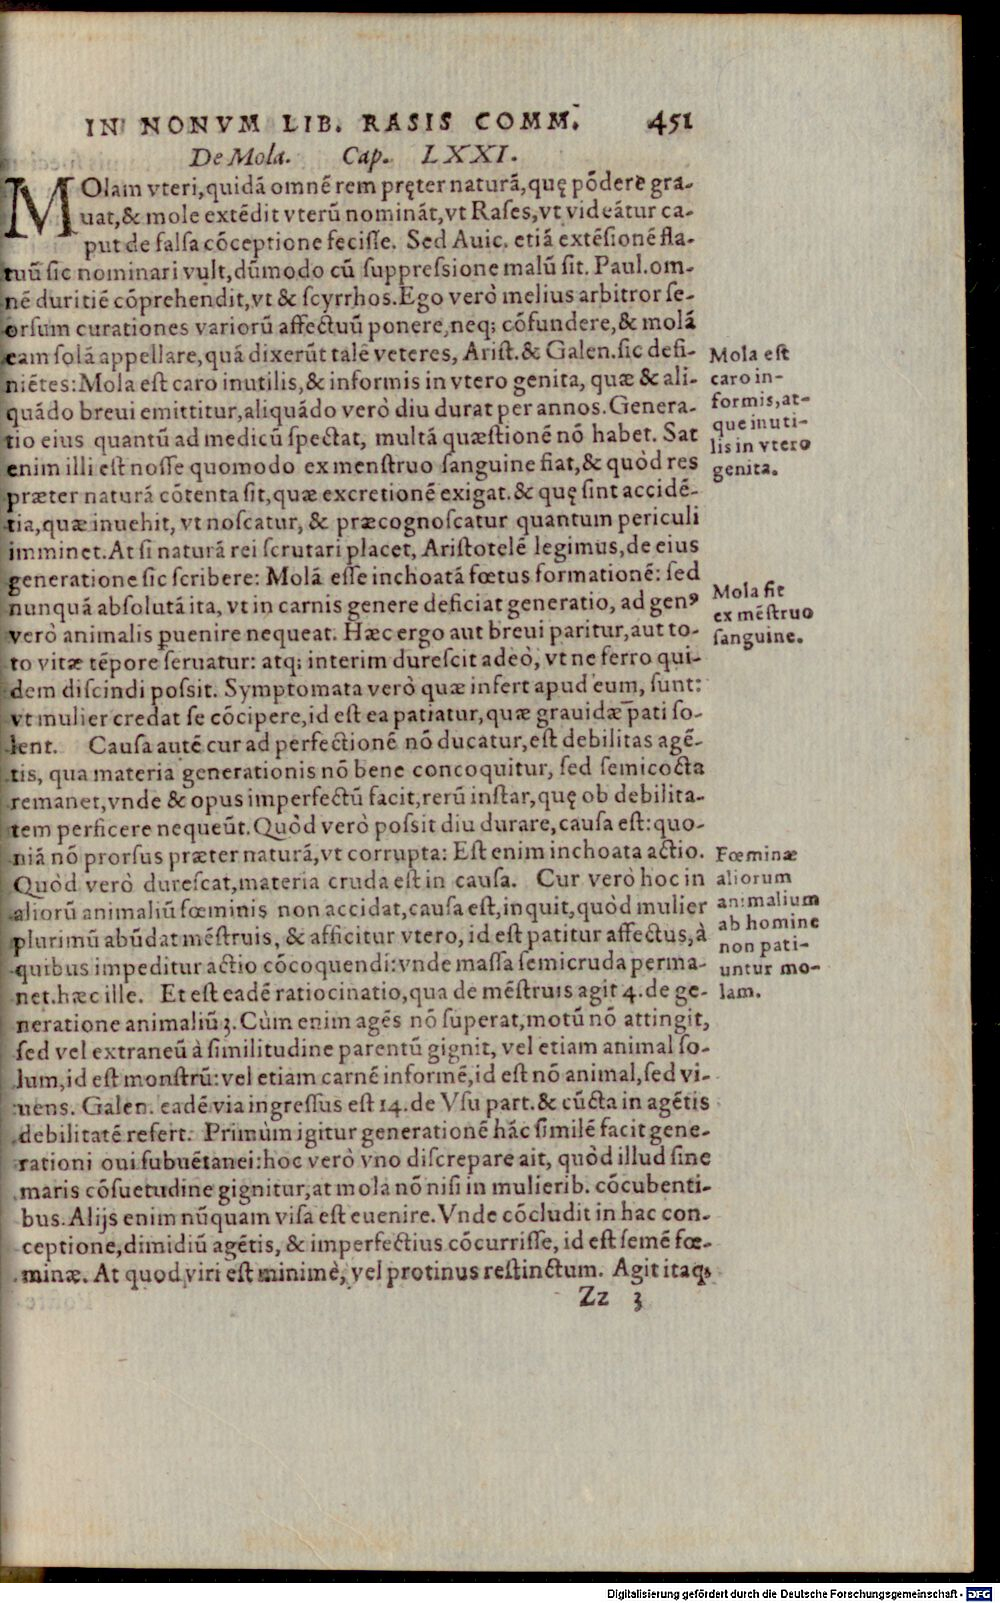 IN NONVM LIB. RASIS COMM. 451
De Mola. Cap. LXXI.
MOlam vteri, quidā omnē rem pręter naturā, quę pōdere gra-
uat, & mole extēdit vterū nomināt, vt Rases, vt videātur ca-
put de falsa cōceptione fecisse. Sed Auic. etiā extēsionē fla-
tuū sic nominari vult, dūmodo cū suppressione malū sit. Paul. om-
nē duritiē cōprehendit, vt & scyrrhos. Ego verò melius arbitror se-
orsum curationes variorū affectuū ponere, neq; cōfundere, & molā
eam solā appellare, quā dixerūt talē veteres, Arist. & Galen. sic defi-
niētes: Mola est caro inutilis, & informis in vtero genita, quæ & ali-
quādo breui emittitur, aliquādo verò diu durat per annos. Genera-
tio eius quantū ad medicū spectat, multā quæstionē nō habet. Sat
enim illi est nosse quomodo ex menstruo sanguine fiat, & quòd res
præter naturā cōtenta sit, quæ excretionē exigat. & quę sint accidē-
tia, quæ inuehit, vt noscatur, & præcognoscatur quantum periculi
imminet. At si naturā rei scrutari placet, Aristotelē legimus, de eius
generatione sic scribere: Molā esse inchoatā fœtus formationē: sed
nunquā absolutā ita, vt in carnis genere deficiat generatio, ad genꝰ
verò animalis ꝑuenire nequeat. Hæc ergo aut breui paritur, aut to-
to vitæ tēpore seruatur: atq; interim durescit adeò, vt ne ferro qui-
dem discindi possit. Symptomata verò quæ infert apud eum, sunt:
vt mulier credat se cōcipere, id est ea patiatur, quæ grauidæ pati so-
lent. Causa autē cur ad perfectionē nō ducatur, est debilitas agē-
tis, qua materia generationis nō bene concoquitur, sed semicocta
remanet, vnde & opus imperfectū facit, rerū instar, quę ob debilita-
tem perficere nequeūt. Quòd verò possit diu durare, causa est: quo-
niā nō prorsus præter naturā, vt corrupta: Est enim inchoata actio.
Quòd verò durescat, materia cruda est in causa. Cur verò hoc in
aliorū animaliū fœminis non accidat, causa est, inquit, quòd mulier
plurimū abūdat mēstruis, & afficitur vtero, id est patitur affectus, à
quibus impeditur actio cōcoquendi: vnde massa semicruda perma-
net. hæc ille. Et est eadē ratiocinatio, qua de mēstruis agit 4. de ge-
neratione animaliū 3. Cùm enim agēs nō superat, motū nō attingit,
sed vel extraneū à similitudine parentū gignit, vel etiam animal so-
lum, id est monstrū: vel etiam carnē informē, id est nō animal, sed vi-
uens. Galen. eadē via ingressus est 14. de Vsu part. & cūcta in agētis
debilitatē refert. Primùm igitur generationē hāc similē facit gene-
rationi oui subuētanei: hoc verò vno discrepare ait, quòd illud sine
maris cōsuetudine gignitur, at mola nō nisi in mulierib. cōcubenti-
bus. Alijs enim nūquam visa est euenire. Vnde cōcludit in hac con-
ceptione, dimidiū agētis, & imperfectius cōcurrisse, id est semē fœ-
minæ. At quod viri est minimè, vel protinus restinctum. Agit itaq;
Zz 3
Mola est
caro in-
formis, at-
que inuti-
lis in vtero
genita.
Mola fit
ex mēstruo
sanguine.
Fœminæ
aliorum
animalium
ab homine
non pati-
untur mo-
lam.
Digitalisierung gefördert durch die Deutsche Forschungsgemeinschaft - DFG